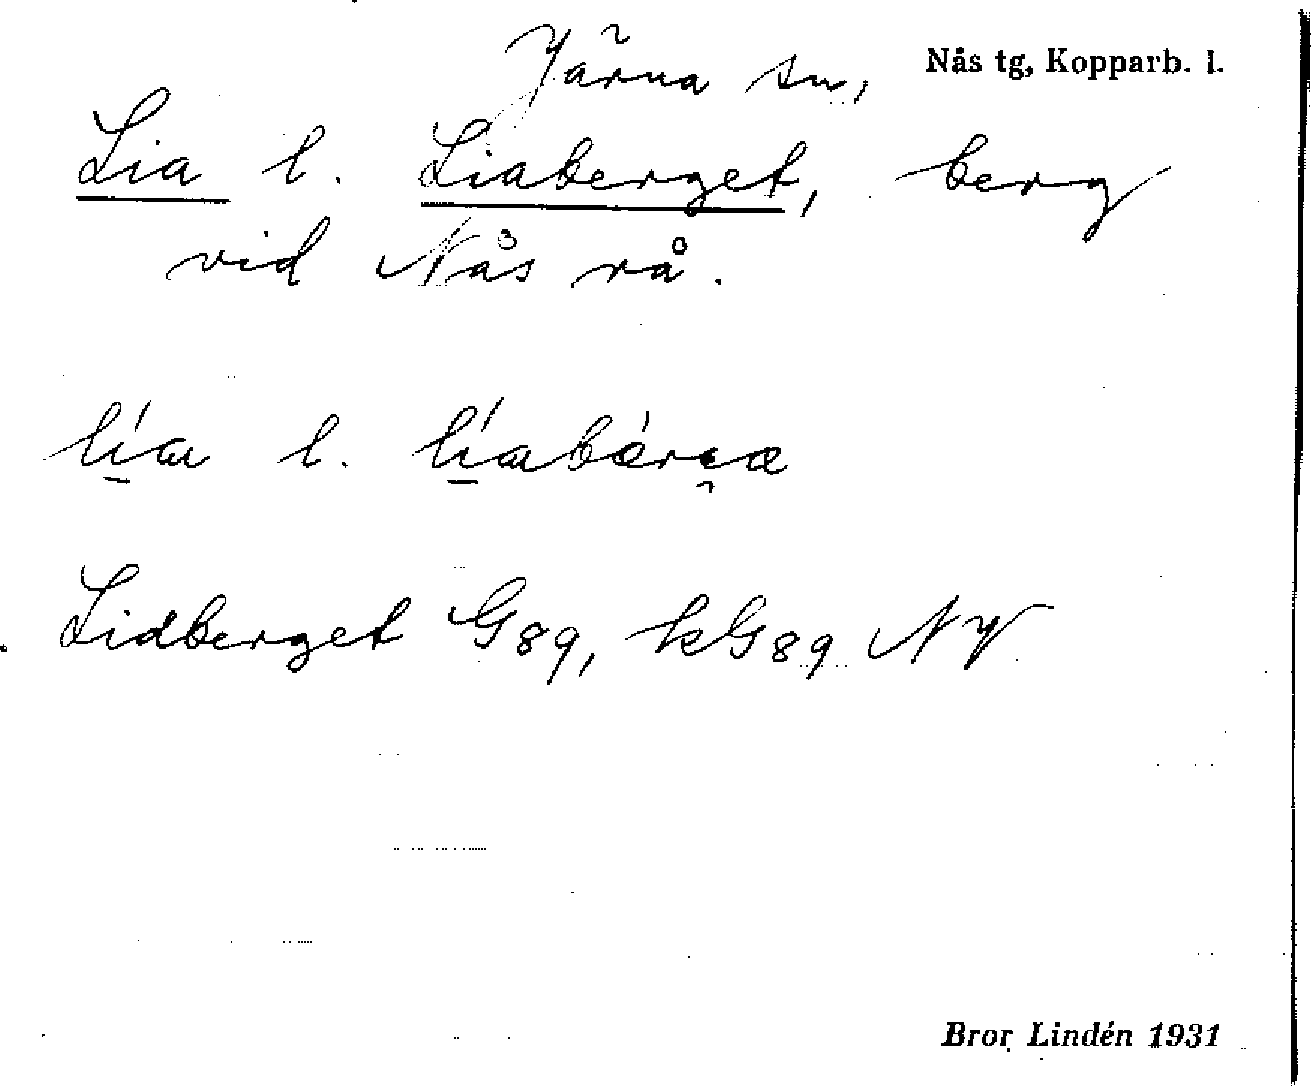 Järna sn, Nås tg, Kopparb. l.
Lia l. Liaberget, berg
vid Nås rå.
l.
Lidberget G89, kG89 NV
Bror Lindén 1931